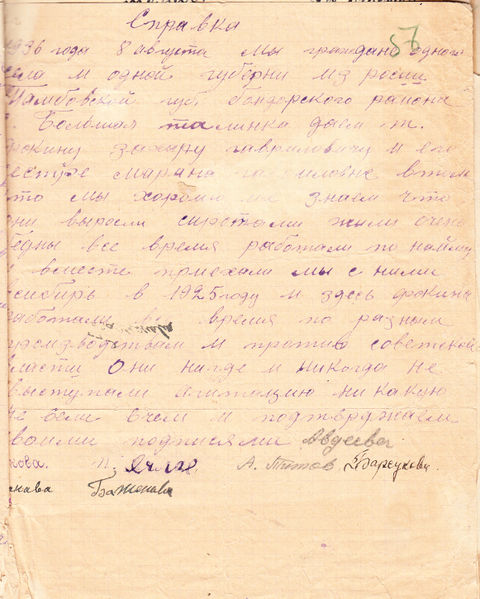 57
Справка
1936 года 8 августа мы граждане одного
села и одной губерни из росии
Тамбовской губ бондорского района
С. Большая талинка даем т.
фокину захару гавриловичу и его
сестре
что мы хорошо их знаем что
они выросли сиротами жили очень
бедны все время работали по найму
и вместе приехали мы с ними
сибирь в 1925 году и здесь фокина
работали все время по разным
производствам и против советской
власти они нигде и никогда не
выступали агитацию никакую
не вели в чем и подтверждаем
своими подписями Авдеева.
кова. А. Титов Барсукова
Баженова